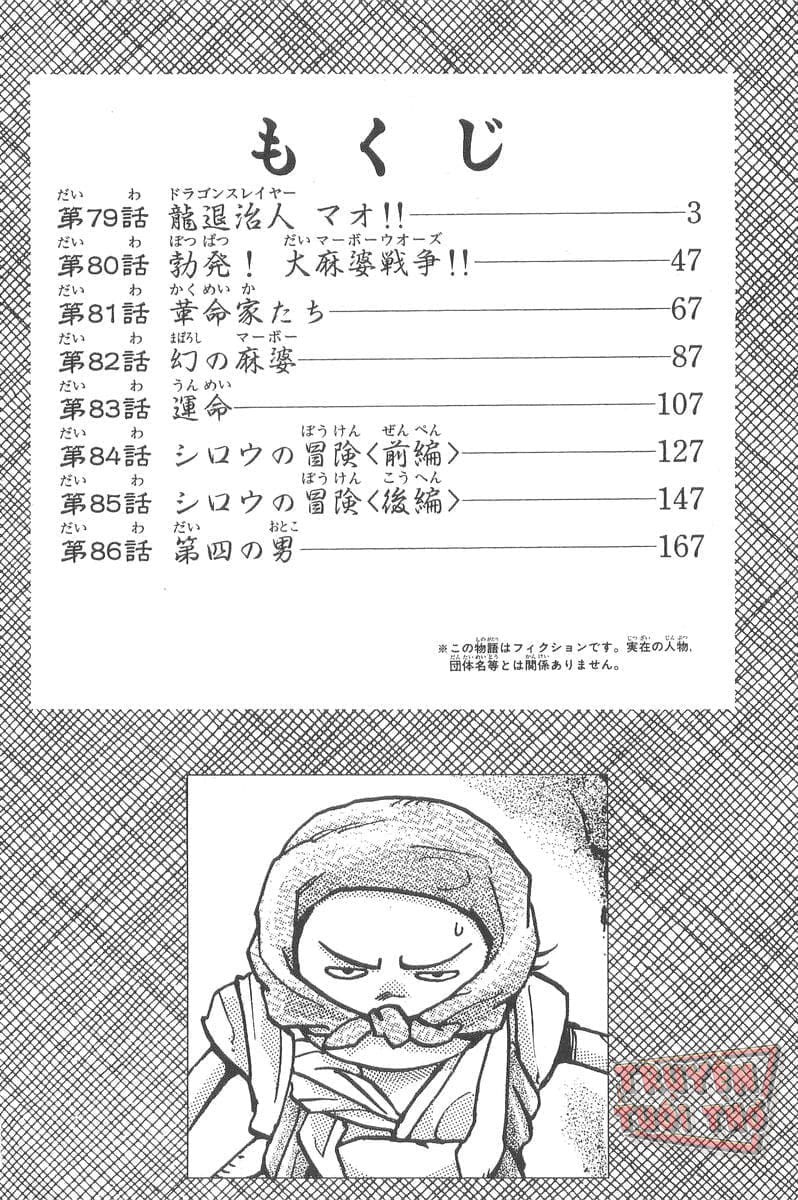 もくじ
第79話 龍退治人 マオ!! 3
第80話 勃発! 大麻婆戦争!! 47
第81話 革命家たち 67
第82話 幻の麻婆 87
第83話 運命 107
第84話 シロウの冒険〈前編〉 127
第85話 シロウの冒険〈後編〉 147
第86話 第四の男 167
※この物語はフィクションです。実在の人物,
団体名等とは関係ありません。
TRUYỆN
TUỔI THƠ